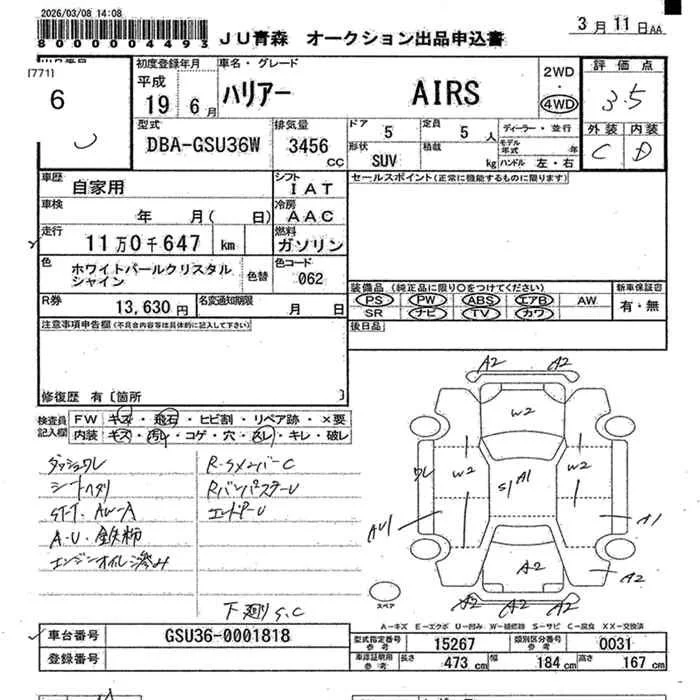 2026/03/08 14:08
8000000004493
JU青森 オークション出品申込書
3月11日AA
[771]
6
初度登録年月
平成
19 6月
車名・グレード
ハリアー AIRS
2WD
・
4WD
評価点
3.5
外装 内装
C D
型式
DBA-GSU36W
排気量
3456
CC
ドア 5
定員 5人
形状 SUV
積載 kg
ディーラー・並行
モデル年式 年
ハンドル 左・右
車歴 自家用
シフト IAT
車検 年 月( 日)
冷房 AAC
走行 11万0千647 km
燃料 ガソリン
色 ホワイトパールクリスタル
シャイン
色替
色コード
062
R券 13,630円
名変通知期限 月 日
セールスポイント(正常に機能するものに限ります)
装備品(純正品に限り○をつけてください)
PS PW ABS エアB AW
SR ナビ TV カワ
新車保証書
有・無
後日品
注意事項申告欄(不具合内容等は具体的に記入して下さい)
修復歴 有〔箇所 〕
検査員
記入欄
FW キズ・飛石・ヒビ割・リペア跡・×要
内装 キズ・汚レ・コゲ・穴・スレ・キレ・破レ
ダッシュワレ
シートヘタリ
ST-T. AW-A
A-U. 鉄粉
エンジンオイル滲み
R-SメンバーC
RバンパステーU
エンドP-U
下廻りS.C
A2 A2
W2
W2 W2
ワレ
S1 A1
AU1
A1
A2 A2
A2 A2 A2
スペア
A-キズ E-エクボ U-凹み W-補修跡 S-サビ C-腐食 XX-交換済
車台番号 GSU36-0001818
登録番号
型式指定番号
参考
15267
類別区分番号
参考
0031
車検証明用
参考
長さ 473cm
幅 184cm
高さ 167cm